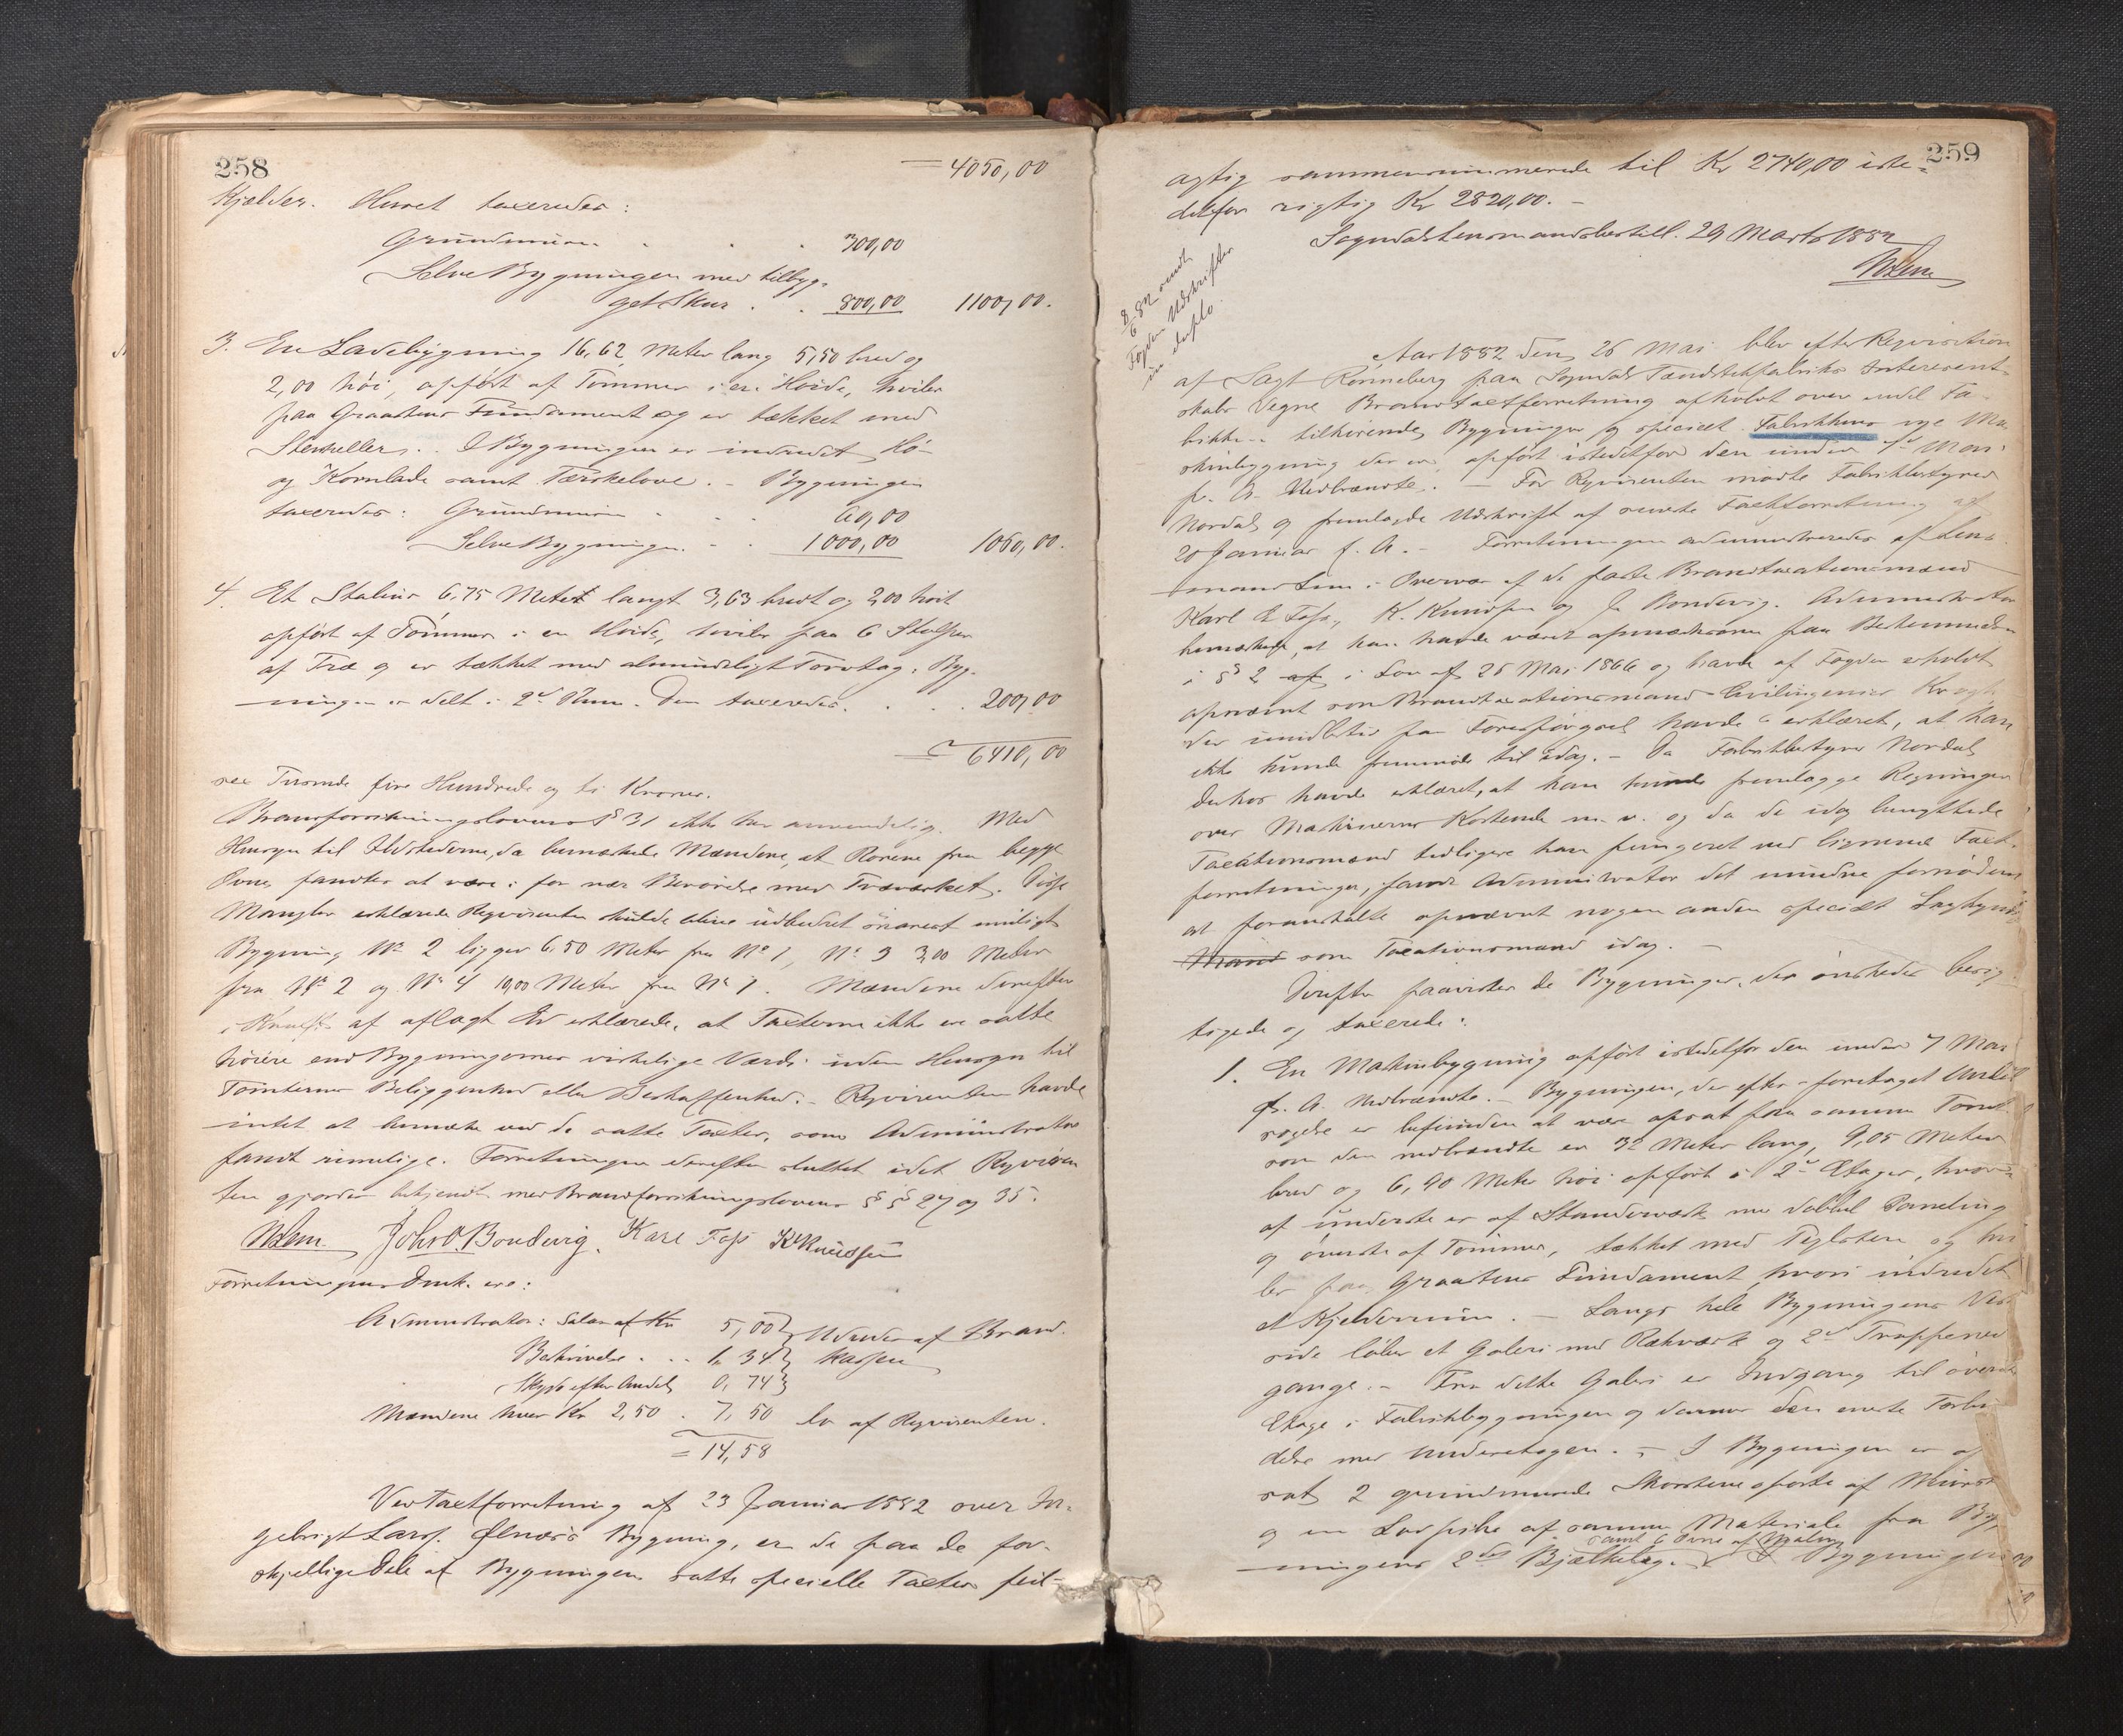 258
= 4050,00
Kjælder. Huset taxeredes:
Grundmuren . . . 300,00
Selve Bygningen med tilbyg-
get Skur . . 800,00 1100,00.
3. En Ladebygning 16,62 Meter lang 5,50 bred og
2,00 høi, opført af Tømmer i en Høide, hviler
paa Graastens Fundament og er tækket med
Stenheller. I Bygningen er indredet Hö-
og Kornlade samt Tærskelove. - Bygningen
taxeredes: Grundmuren . . . 60,00
Selve Bygningen . . 1000,00 1060,00.
4. Et Stalhus 6,75 Meter langt 3,63 bredt og 2,00 høit
opført af Tømmer i en Høide, hviler paa 6 Stolper
af Træ og er tækket med almindeligt Torvtag. Byg-
ningen er delt i 2de Rum. Den taxeredes . . . 200,00
= 6410,00
sex Tusende fire Hundrede og ti Kroner.
Brandforsikringslovens § 31 ikke her anvendelig. Med
Hensyn til Ildstederne, da bemærkede Mændene, at Rørene fra begge
Ovne fandtes at være i for nær Berørelse med Træværket. Disse
Mangler erklærede Reqvirenten skulde blive udbedret snarest muligt
Bygning No 2 ligger 6,50 Meter fra No 1, No 3 3,00 Meter
fra No 2 og No 4 10,00 Meter fra No 1. Mændene derefter
i Kraft af aflagt Ed erklærede, at Taxterne ikke ere satte
høiere end Bygningernes virkelige Værdi uden Hensyn til
Tomternes Beliggenhed eller Beskaffenhed. - Reqvirenten havde
intet at bemærke ved de satte Taxter, som Administrator
fandt rimelige. Forretningen derefter sluttet idet Reqviren-
ten gjordes bekjendt med Brandforsikringslovens §§ 27 og 35.
NLem. Johs O. Bondevig. Karl Foss K Knudsen
Forretningens Omk. ere:
Administrator: Salær af Kr 5,00 } Udredes af Brand-
Beskrivelse . . . 1,34 } kassen
Skyds efter Andel 0,74 }
Mændene hver Kr 2,50 . 7,50 bt af Reqvirenten.
= 14,58
Ved Taxtforretning af 23 Januar 1882 over In-
gebrigt Larss. Ølnæs's Bygning, er de paa de for-
skjellige Dele af Bygningen satte specielle Taxter feil-
259
agtig sammensummerede til Kr 2740,00 iste-
detfor rigtig Kr 2820,00. -
Sogndals Lensmandsbestill. 29 Marts 1882
NLem
8/6 82 sendt
Fogden Udskrifter
in duplo.
Aar 1882 den 26 Mai blev efter Reqvisition
af Sagf. Rønneberg paa Sogndals Tændstikfabriks Interessent-
skabs Vegne Brandtaxtforretning afholdt over endel Fa-
brikken tilhørende Bygninger og specielt Fabrikkens nye Ma-
skinbygning der er opført istedetfor den under 7de Mars
f. A. Nedbrændte. - For Reqvirenten mødte Fabrikbestyrer
Nordal og fremlagde Udskrift af seneste Taxtforretning af
20 Januar f. A. - Forretningen administreredes af Lens-
mand Lem i Overvær af de faste Brandtaxationsmænd
Karl E Foss, K. Knudsen og J. Bondevig. Administrator
bemærkede, at han havde været opmærksom paa Bestemmelsen
i § 2 af i Lov af 26 Mai 1866 og havde af Fogden erholdt
opnævnt som Brandtaxationsmand Civilingeniør Krogh
der imidlertid paa Forespørgsel havde erklæret, at han
ikke kunde fremmøde til idag. - Da Fabrikbestyrer Nordal
derhos havde erklæret, at han kunde fremlægge Regninger
over Maskinernes Kostende m. v. og da de idag benyttede
Taxationsmænd tidligere har fungeret ved lignende Taxt-
forretninger, fandt Administrator det mindre fornødent
at foranstalte opnævnt nogen anden speciel Sagkyndig
Mand som Taxationsmand idag. -
Derefter paavistes de Bygninger, der ønskedes besig-
tigede og taxerede:
1. En Maskinbygning opført istedetfor den under 7 Mars
f. A. Nedbrændte. - Bygningen, der efter foretaget Under-
søgelse er befunden at være opsat paa samme Tomt
som den nedbrændte er 32 Meter lang, 9,05 Meter
bred og 6,90 Meter høi opført i 2de Etager, hvor-
af underste er af Standerværk med dobbel Paneling
og øverste af Tømmer, tækket med Teglsten og hvi-
ler paa Graastens Fundament, hvori indredet
et Kjelderrum. - Langs hele Bygningens Vest-
side løber et Galeri med Rækværk og 2de Trappened-
gange. - Fra dette Galeri er Indgang til øverste
Etage i Fabrikbygningen og danner den eneste Forbin-
delse med Underetagen. - I Bygningen er op-
sat 2 grundmurede Skorstene opførte af Mursten
og en Luftpibe af samme Materiale fra Byg-
samt 6 Ovne af Malm
ningens 2det Bjælkelag. I Bygningen